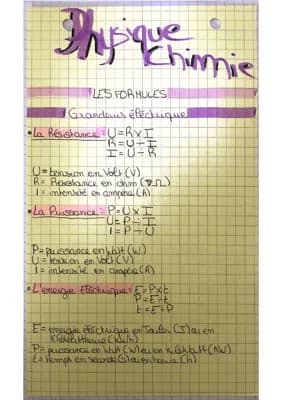 Physique
chimie
LES FORMULES
Grandeurs éléctrique
• La Résistance : U=RxI
R=U÷I
I=U÷R
U= tension en Volt (V)
R= Résistance en ohm (Ω)
I= intensité en ampère (A)
• La Puissance : P=UxI
U=P÷I
I=P÷U
P= puissance en Watt (W)
U= tension en Volt (V)
I= intensité en ampère (A)
• L'énergie Eléctrique : E=Pxt
P=E÷t
t=E÷P
E= énergie éléctrique en Joules (J) ou en
Kilowattheure (kWh)
P= puissance en Watt (W) ou en kiloWatt (kW)
t= temps en seconde (s) ou en heure (h)